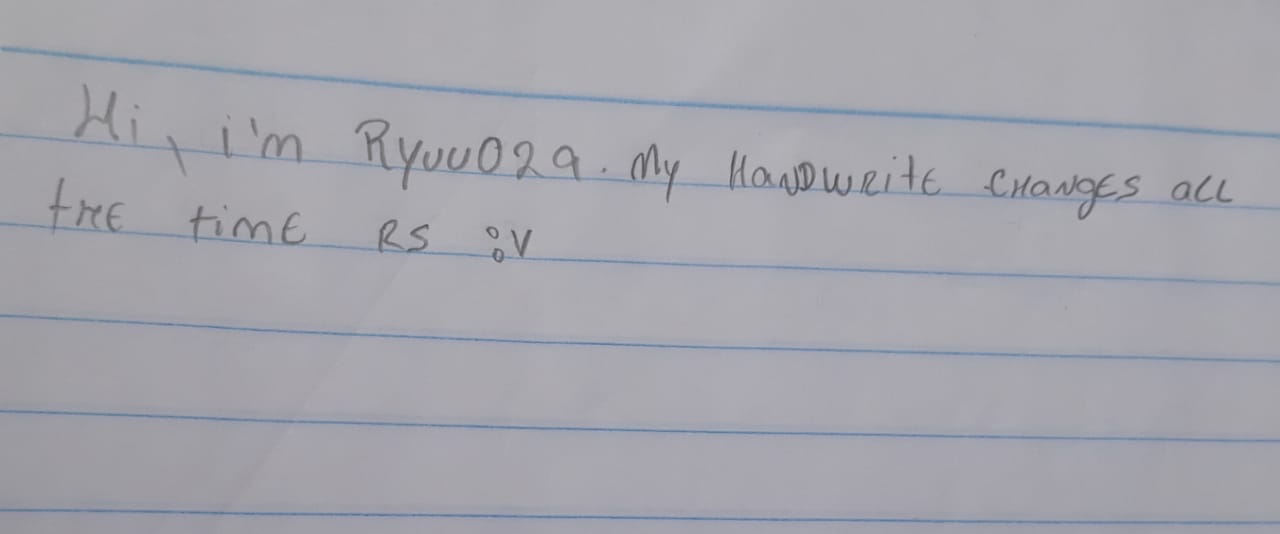 Hi, i'm Ryuu029. My HaNDWRitE CHANgES aLL
tHE timE RS :V